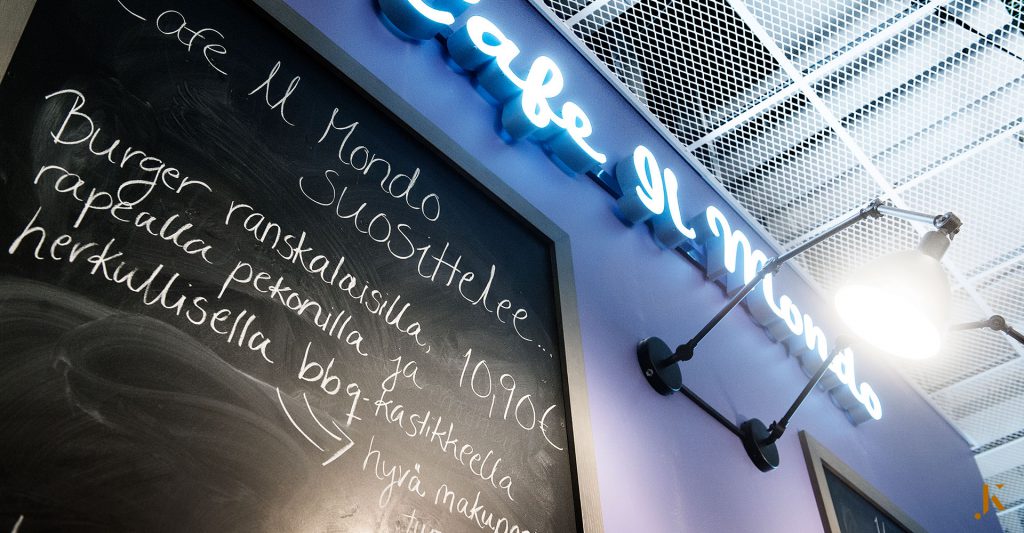 Cafe Il Mondo
suosittelee...
Burger ranskalaisilla, 10,90€
rapealla pekonilla ja
herkullisella bbq-kastikkeella
hyvä
Cafe Il Mondo